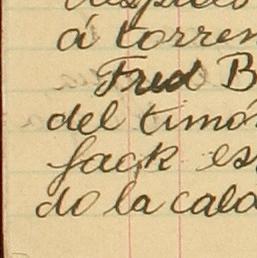 á torren
Fred B
del timó
Jack es
do la cald